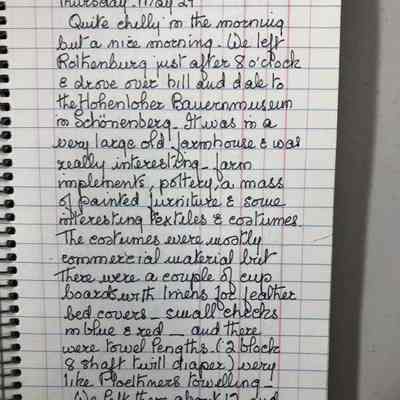 Thursday. May 29
Quite chilly in the morning
but a nice morning. We left
Rothenburg just after 8 o'clock
& drove over hill and dale to
the Hohenloher Bauernmuseum
in Schönenberg. It was in a
very large old farmhouse & was
really interesting - farm
implements, pottery, a mass
of painted furniture & some
interesting textiles & costumes
The costumes were mostly
commercial material but
there were a couple of cup
boards with linens for feather
bed covers - small checks
in blue & red - and there
were towel lengths. (2 block
8 shaft twill diaper) very
like Ploethners towelling -
We left there about 12 and